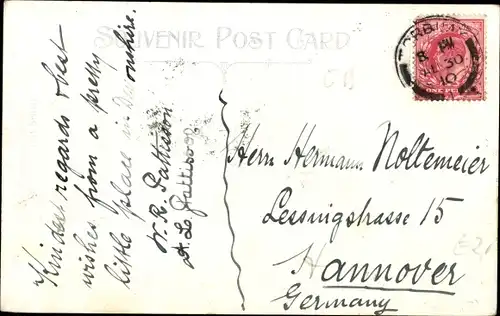 SOUVENIR POST CARD
Kindest regards & best
wishes from a pretty
little place in Devonshire.
W. R. Pattison
A. L. Pattison
Herrn Hermann Noltemeier
Lessingstrasse 15
Hannover
Germany
8 PM
30
10
ONE PE